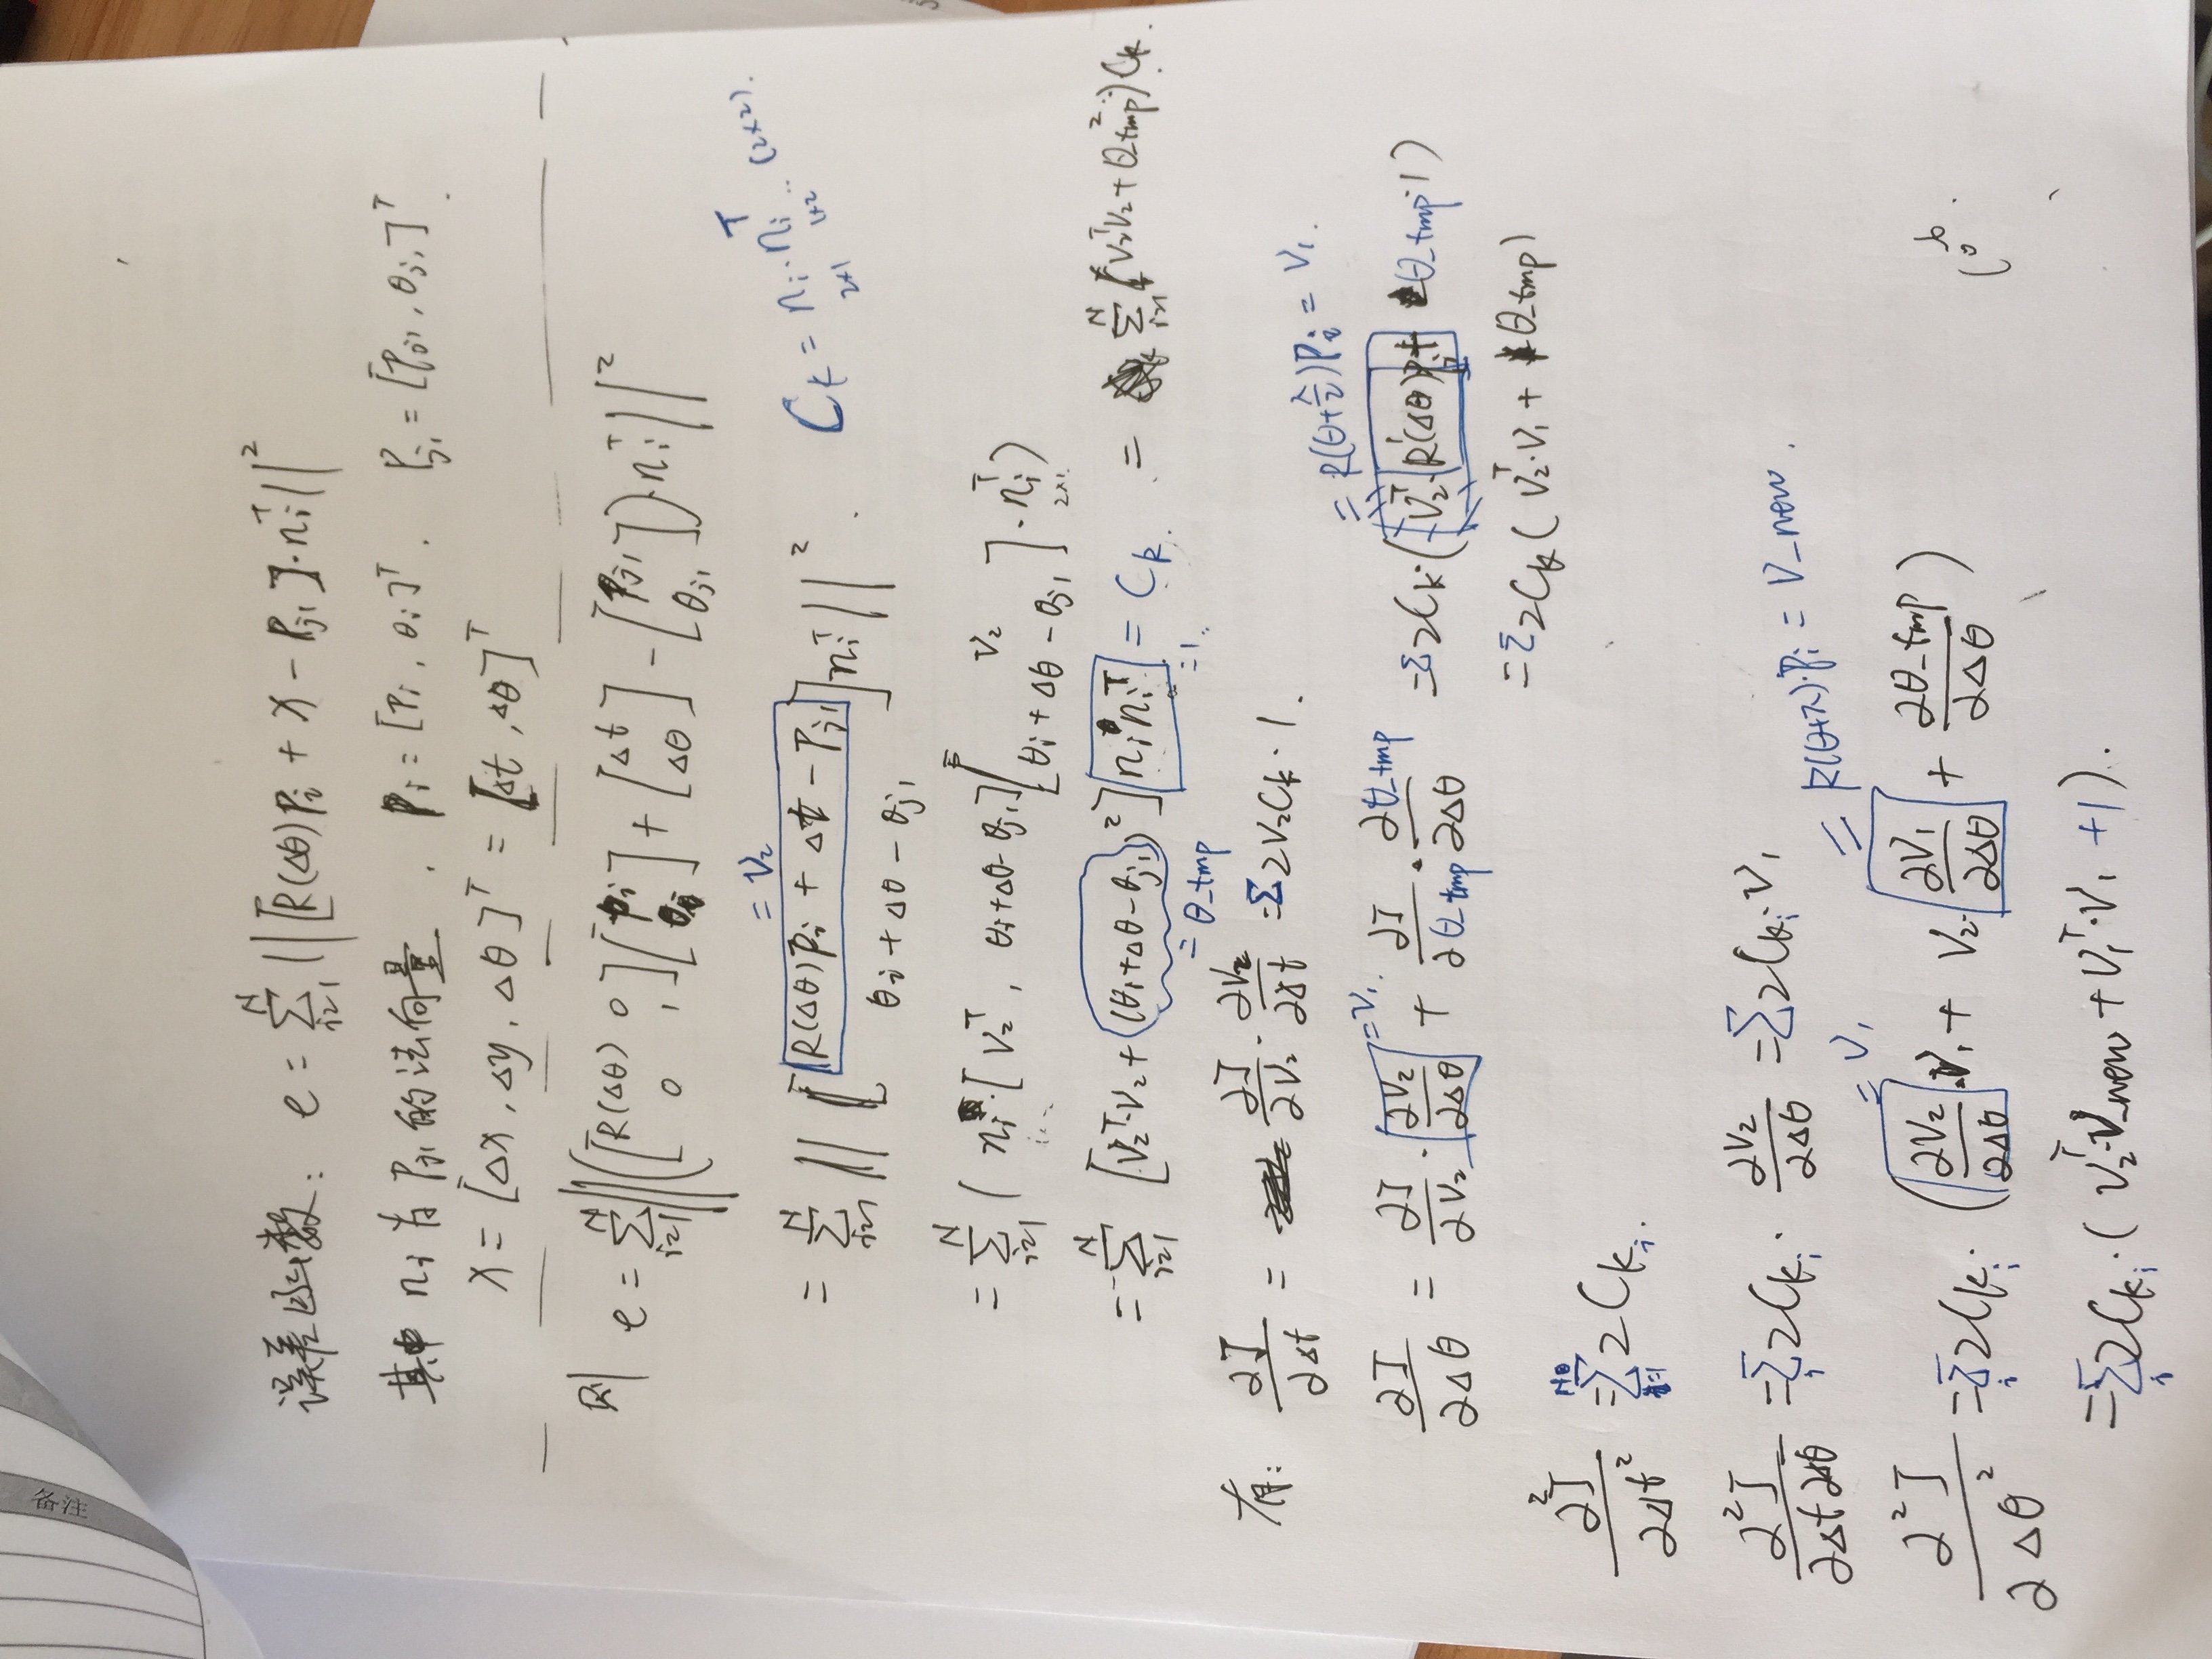 备注
误差函数: e = Σ_{i=1}^{N} ||[R(Δθ)p_i + X − P_{j1}]·n_i^T||^2
其中 n_i 为 P_{j1} 的法向量 , P_i = [p_i , θ_i]^T . P_{j1} = [p_{j1} , θ_{j1}]^T .
X = [Δx , Δy , Δθ]^T = [Δt , Δθ]^T
则 e = Σ_{i=1}^{N} ||([R(Δθ) 0; 0 1][p_i; θ_i] + [Δt; Δθ] − [p_{j1}; θ_{j1}])·n_i^T||^2
= V_2
= Σ_{i=1}^{N} ||[R(Δθ)p_i + Δt − p_{j1}; θ_i + Δθ − θ_{j1}] n_i^T||^2 .
C_k = n_i · n_i^T (2×2).
2×1 1×2
= Σ_{i=1}^{N} ( n_i · [V_2^T , θ_i+Δθ−θ_{j1}] [V_2; θ_i + Δθ − θ_{j1}] · n_i^T )
2×1
= Σ_{i=1}^{N} [V_2^T·V_2 + (θ_i+Δθ−θ_{j1})^2] n_i n_i^T = C_k = Σ_{i=1}^{N} (V_2^T V_2 + θ_tmp^2) C_k
= θ_tmp
=1.
有: ∂J/∂Δt = ∂J/∂V_2 · ∂V_2/∂Δt = Σ2V_2C_k · 1 .
= R(θ+π/2)P_i = V_1 .
∂J/∂Δθ = ∂J/∂V_2 · ∂V_2/∂Δθ + ∂J/∂θ_tmp · ∂θ_tmp/∂Δθ = Σ2C_k·(V_2^T·R'(Δθ)p_i + θ_tmp·1)
= V_1.
= Σ2C_k ( V_2^T·V_1 + θ_tmp)
∂^2J/∂Δt^2 = Σ 2C_{k_i} .
∂^2J/∂Δt∂Δθ = Σ_i 2C_{k_i} · ∂V_2/∂Δθ = Σ2C_{k_i} V_1
= V_1
= R(θ+π)·P_i = V_new .
∂^2J/∂Δθ^2 = Σ_i 2C_{k_i} · (∂V_2/∂Δθ · V_1 + V_2 · ∂V_1/∂Δθ + ∂θ_tmp/∂Δθ)
= Σ_i 2C_{k_i} · ( V_2^T·V_new + V_1^T·V_1 + 1 ) .